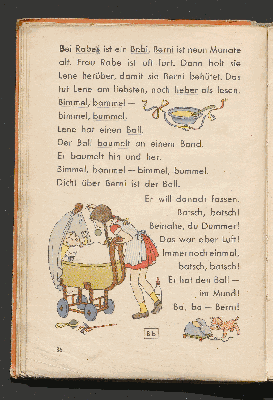 Bei Rabes ist ein Bobi. Berni ist neun Monate
alt. Frau Rabe ist oft fort. Dann holt sie
Lene herüber, damit sie Berni behütet. Das
tut Lene am liebsten, noch lieber als lesen.
Bimmel, bammel —
bimmel, bummel.
Lene hat einen Ball.
Der Ball baumelt an einem Band.
Er baumelt hin und her.
Bimmel, bammel — bimmel, bummel.
Dicht über Berni ist der Ball.
Er will danach fassen.
Batsch, batsch!
Beinahe, du Dummer!
Das war aber Luft!
Immer noch einmal,
batsch, batsch!
Er hat den Ball —
im Mund!
Ba, ba — Berni!
B b
36